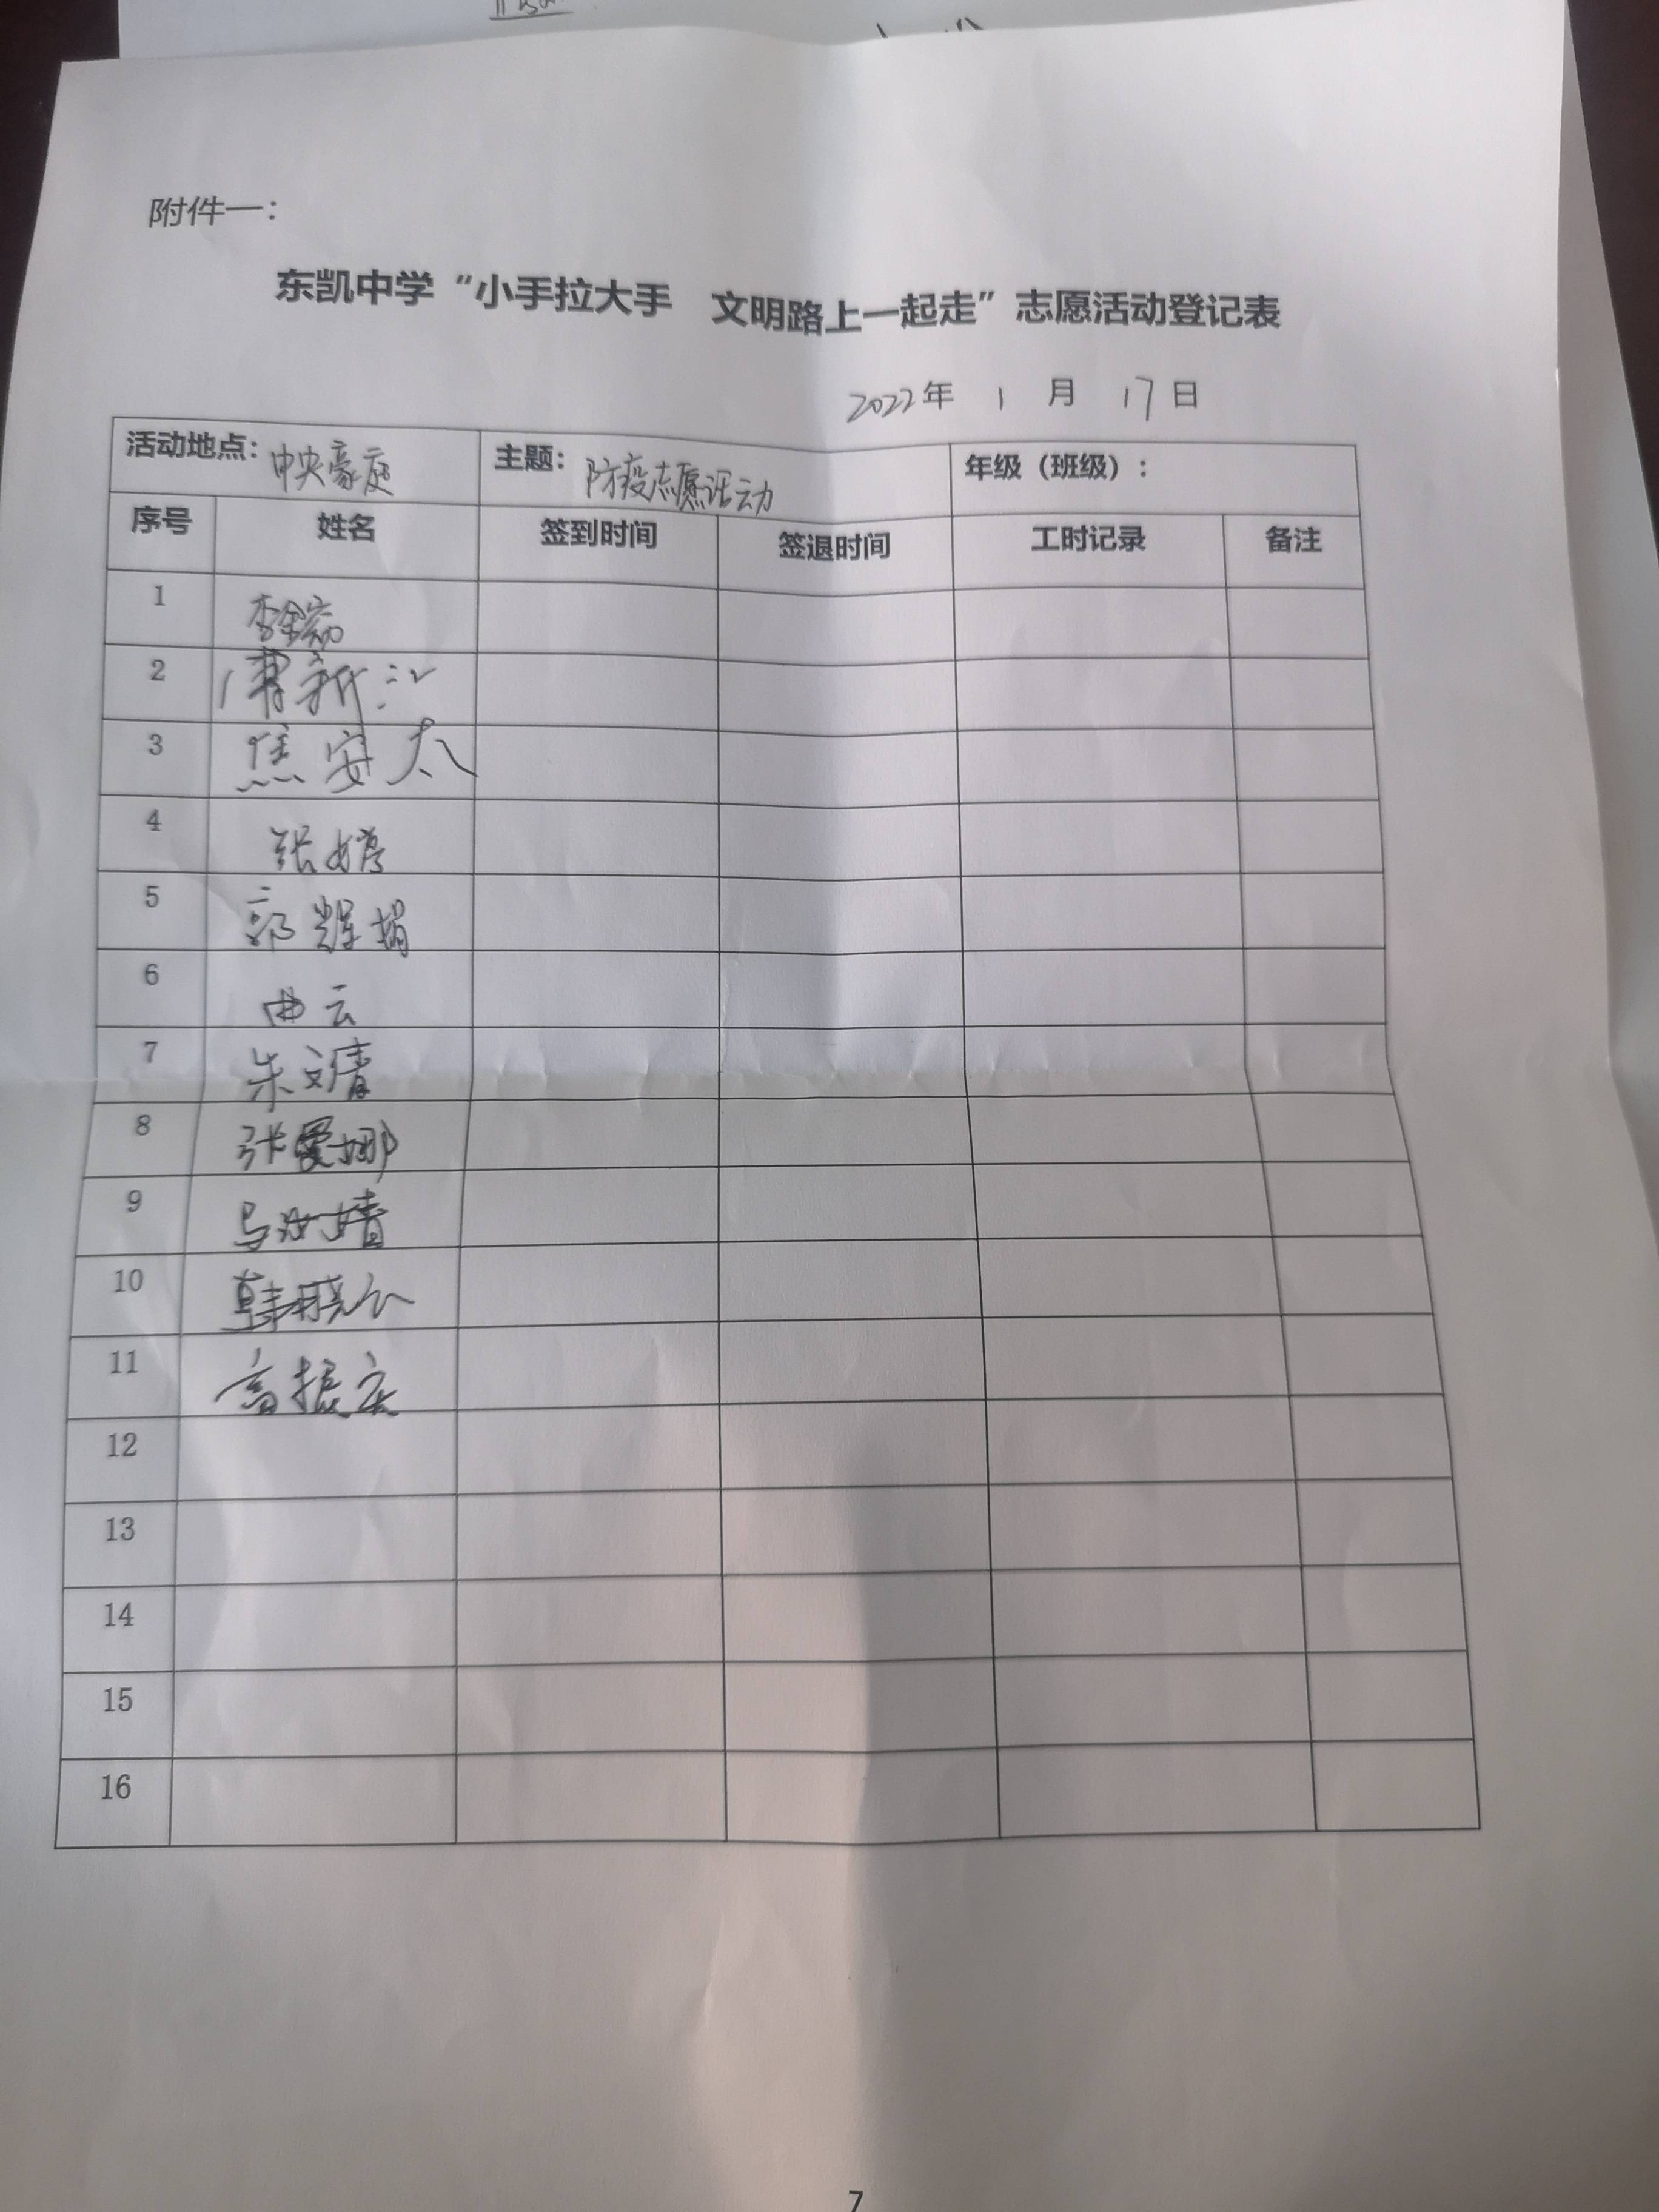 附件一：
东凯中学“小手拉大手 文明路上一起走”志愿活动登记表
2022年 1 月 17日
活动地点：中央豪庭 主题：防疫志愿活动 年级（班级）：
序号 姓名 签到时间 签退时间 工时记录 备注
1 李金宏
2 傅新江
3 焦安太
4 张婷
5 郭辉娟
6 曲云
7 朱文清
8 张爱娜
9 马汝婧
10 韩晓
11 高振宏
12
13
14
15
16
7